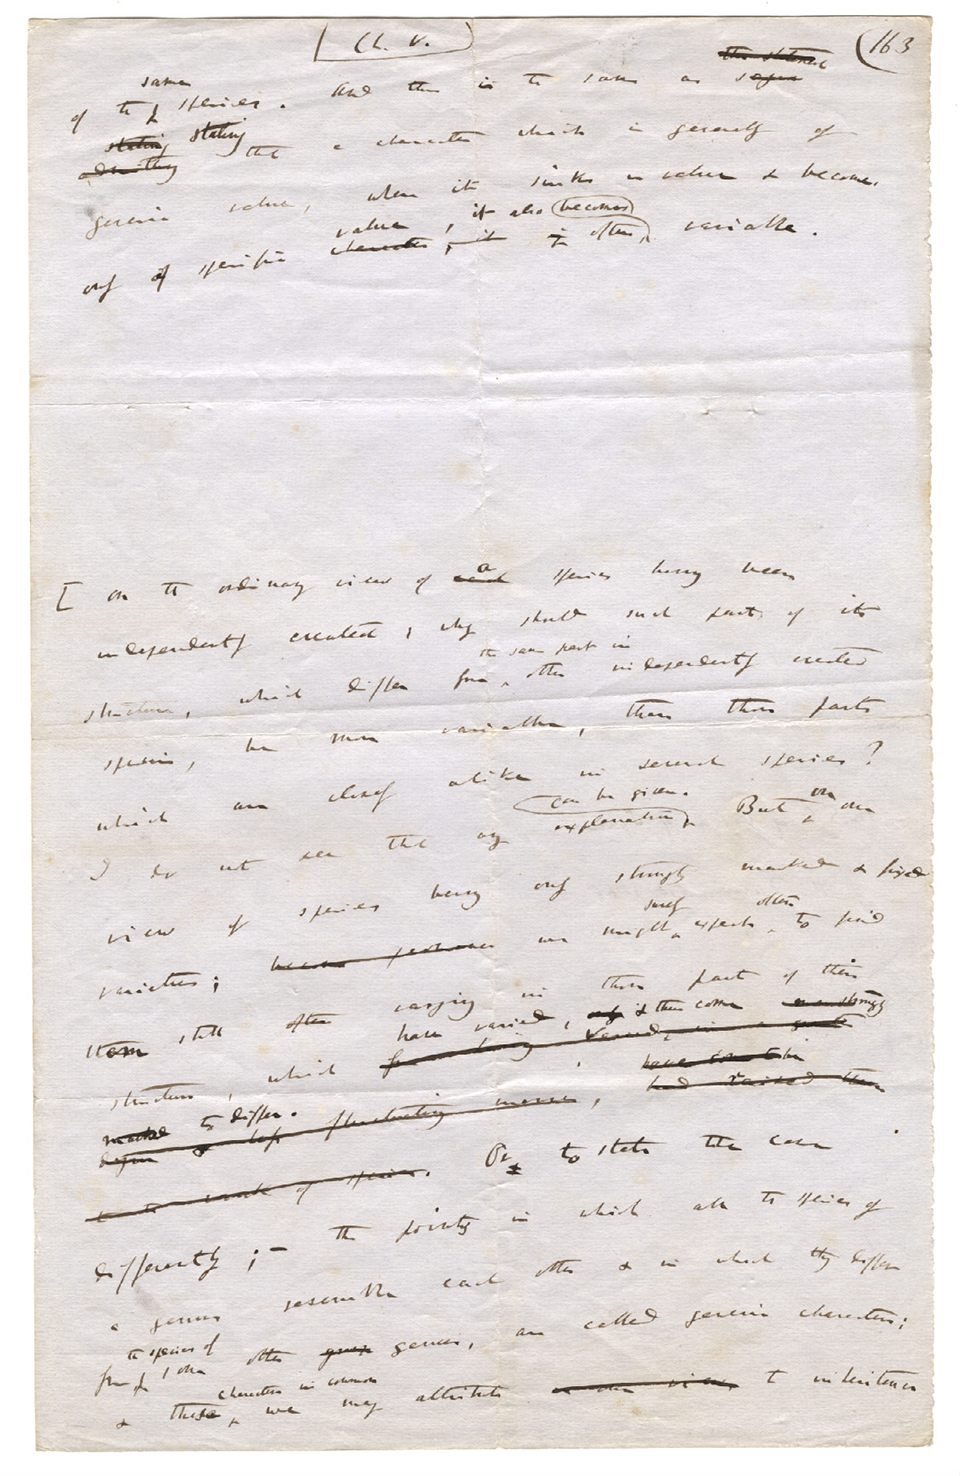 Ch. V.
(163
same
of the species. And this is the same as
stating
that a character which is generally of
generic value, when it sinks in value & becomes
value, it also becomes
only of specific often variable.
[ On the ordinary view of a species having been
independently created, why should such part of its
the same part in
structure, which differ from other independently created
species, be more variable, than those parts
which are closely alike in several species?
can be given.
I do not see that any explanation But on our
view of species being only strongly marked & fixed
surely often
varieties; we might expect to find
them still often varying in those parts of their
have varied, & thus come
structure, which
to differ.
Or to state the case
differently;— the points in which all the species of
a genus resemble each other & in which they differ
the species of
from some other genus, are called generic characters;
characters in common
& these we may attribute to inheritance